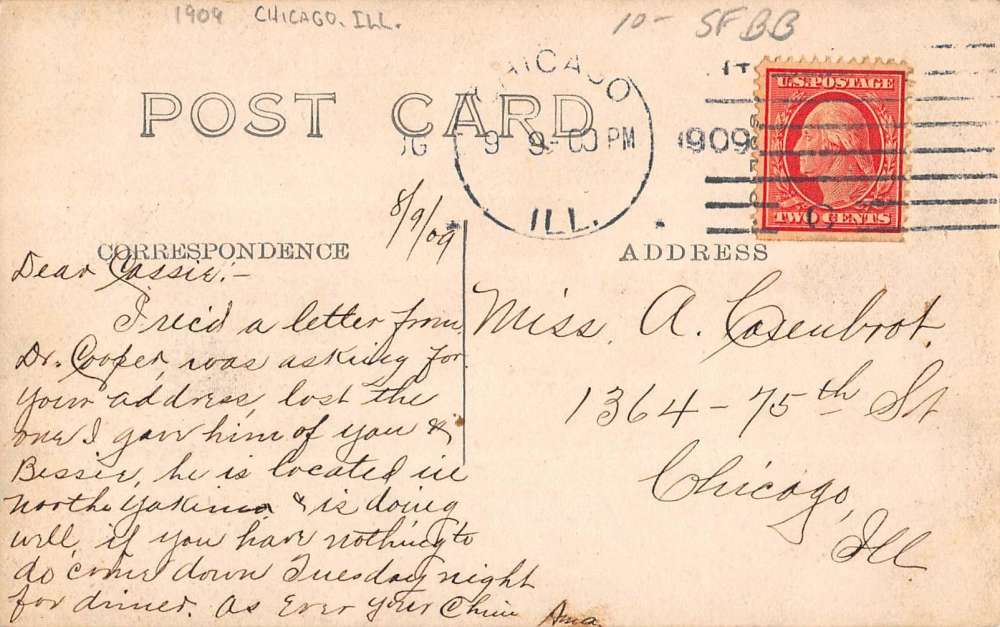 1909 CHICAGO. ILL.
10- SFBB
POST CARD
CHICAGO
9 9-00 PM
1909
ILL.
U.S. POSTAGE
TWO CENTS
8/9/09
CORRESPONDENCE
Dear Cassie:-
I rec'd a letter from
Dr. Cooper, was asking for
your address, lost the
one I gave him of you &
Bessie, he is located in
North Yakima & is doing
well, if you have nothing to
do come down Tuesday night
for dinner. As Ever your Chum
ADDRESS
Miss. A. Casenbrot.
1364-75th St
Chicago,
Ill